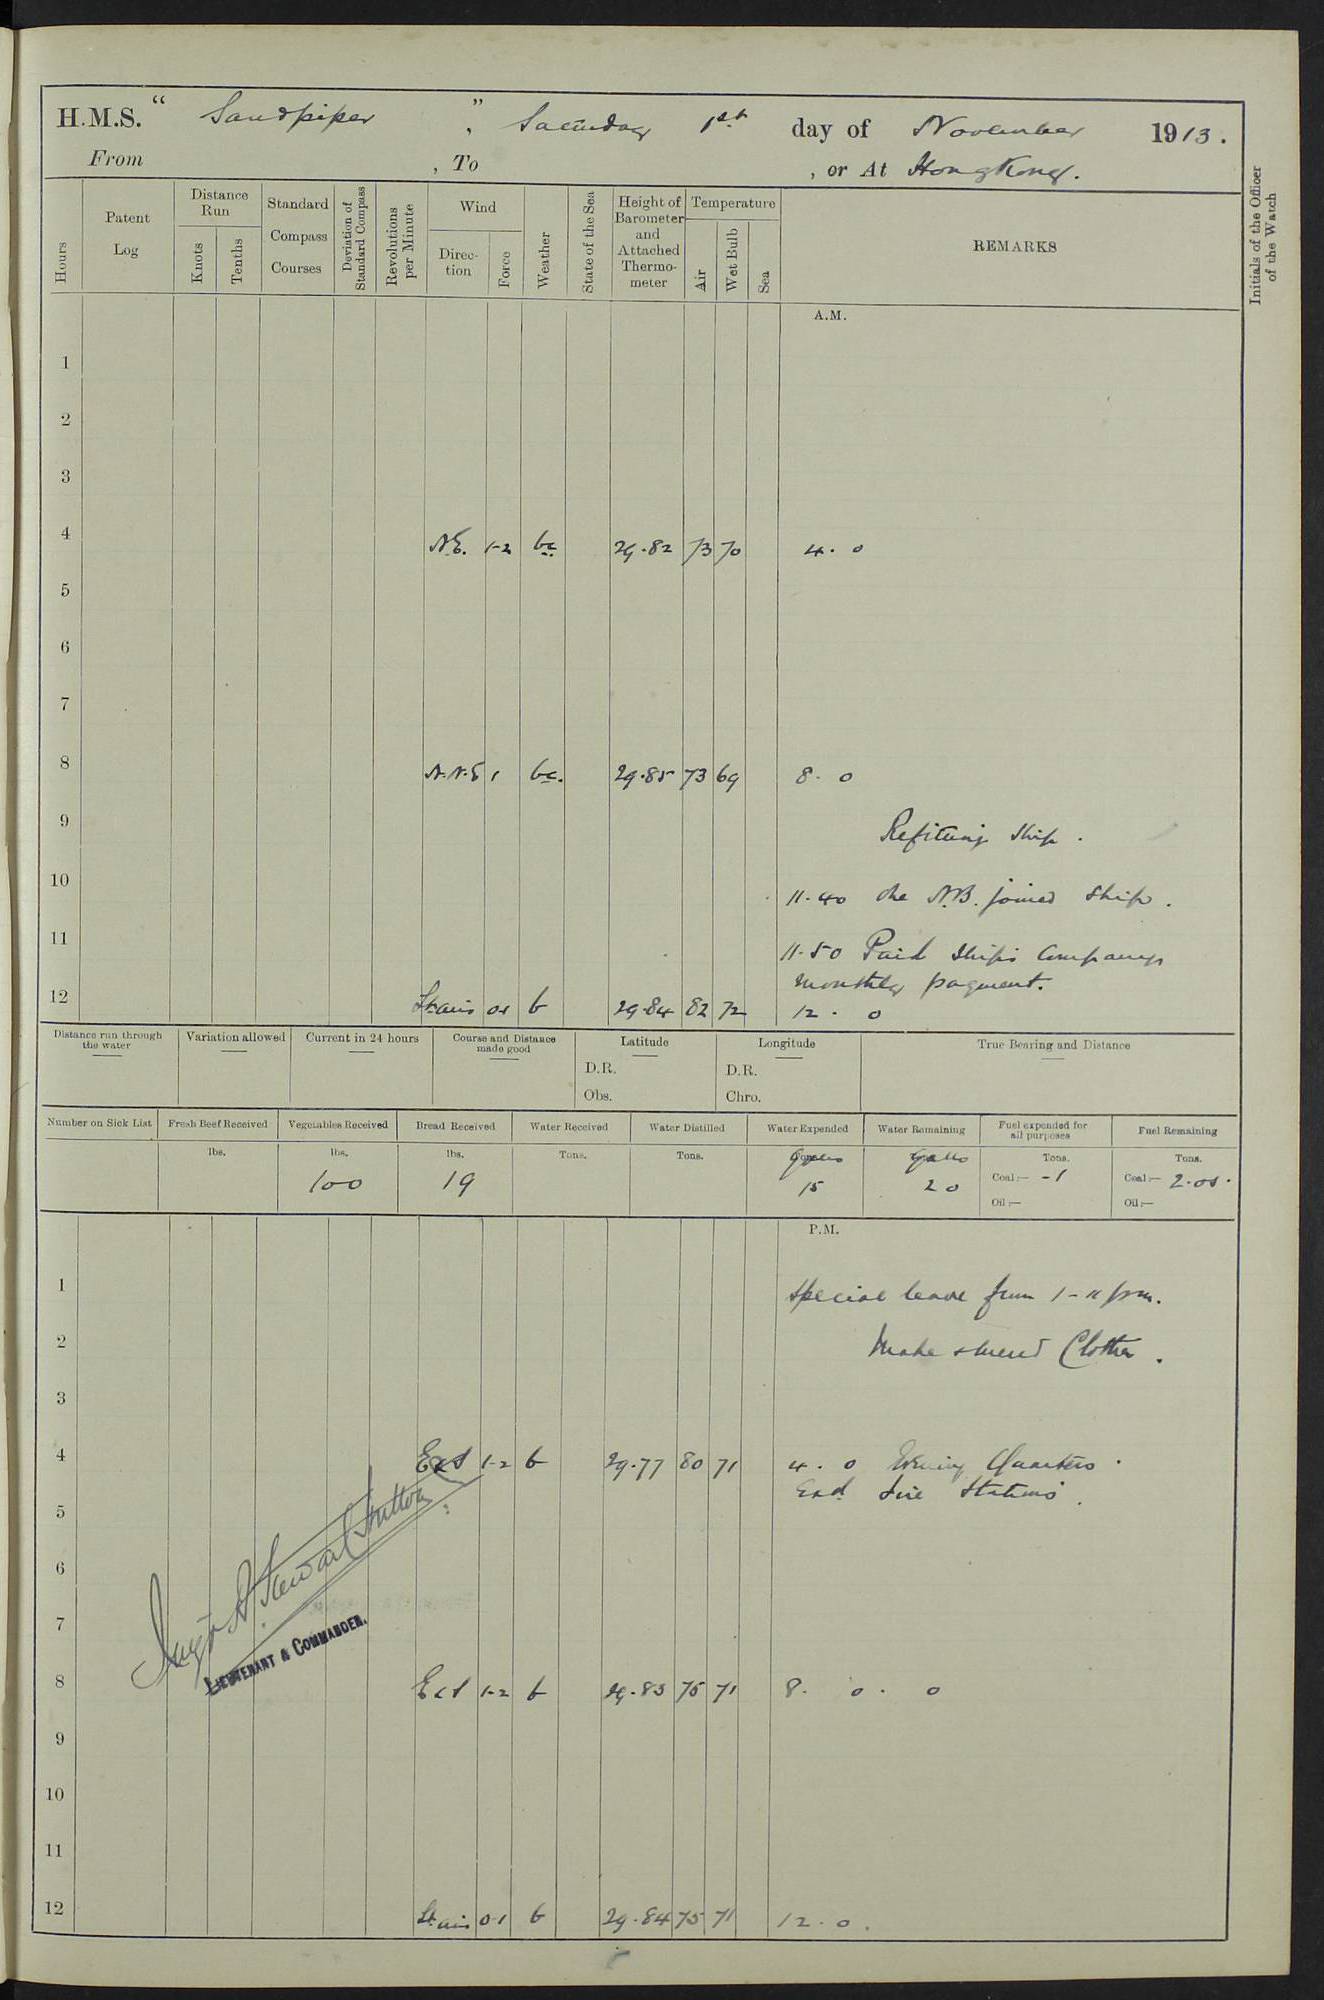 H.M.S. “ Sandpiper ” , Saturday 1st day of November 1913.
From , To , or At HongKong.
Hours
Patent Log
Distance Run
Knots
Tenths
Standard Compass Courses
Deviation of Standard Compass
Revolutions per Minute
Wind
Direction
Force
Weather
State of the Sea
Height of Barometer and Attached Thermometer
Temperature
Air
Wet Bulb
Sea
REMARKS
Initials of the Officer of the Watch
A.M.
1
2
3
4 N.E. 1-2 bc 29.82 73 70 4. 0
5
6
7
8 N.N.E 1 bc. 29.85 73 69 8. 0
9 Refitting Ship.
10 11.40 One N.B. joined Ship.
11 11.50 Paid Ships Company
monthly payment.
12 Lt airs 0-1 b 29.84 82 72 12. 0
Distance run through the water
Variation allowed
Current in 24 hours
Course and Distance made good
Latitude
D.R.
Obs.
Longitude
D.R.
Chro.
True Bearing and Distance
Number on Sick List
Fresh Beef Received
Vegetables Received
Bread Received
Water Received
Water Distilled
Water Expended
Water Remaining
Fuel expended for all purposes
Fuel Remaining
lbs. lbs. lbs. Tons. Tons. Galls Galls Tons. Tons.
100 19 15 20 Coal:— -1 Coal:— 2.05.
Oil:— Oil:—
P.M.
1 Special leave from 1-11 pm.
2 Make & mend Clothes.
3
4 ExS 1-2 b 29.77 80 71 4. 0 Evening Quarters.
Exd. fire Stations.
5
6
7
Stewart Hutton
LIEUTENANT & COMMANDER.
8 ExS 1-2 b 29.83 75 71 8. 0. 0
9
10
11
12 Lt airs 0-1 b 29.84 75 71 12. 0.